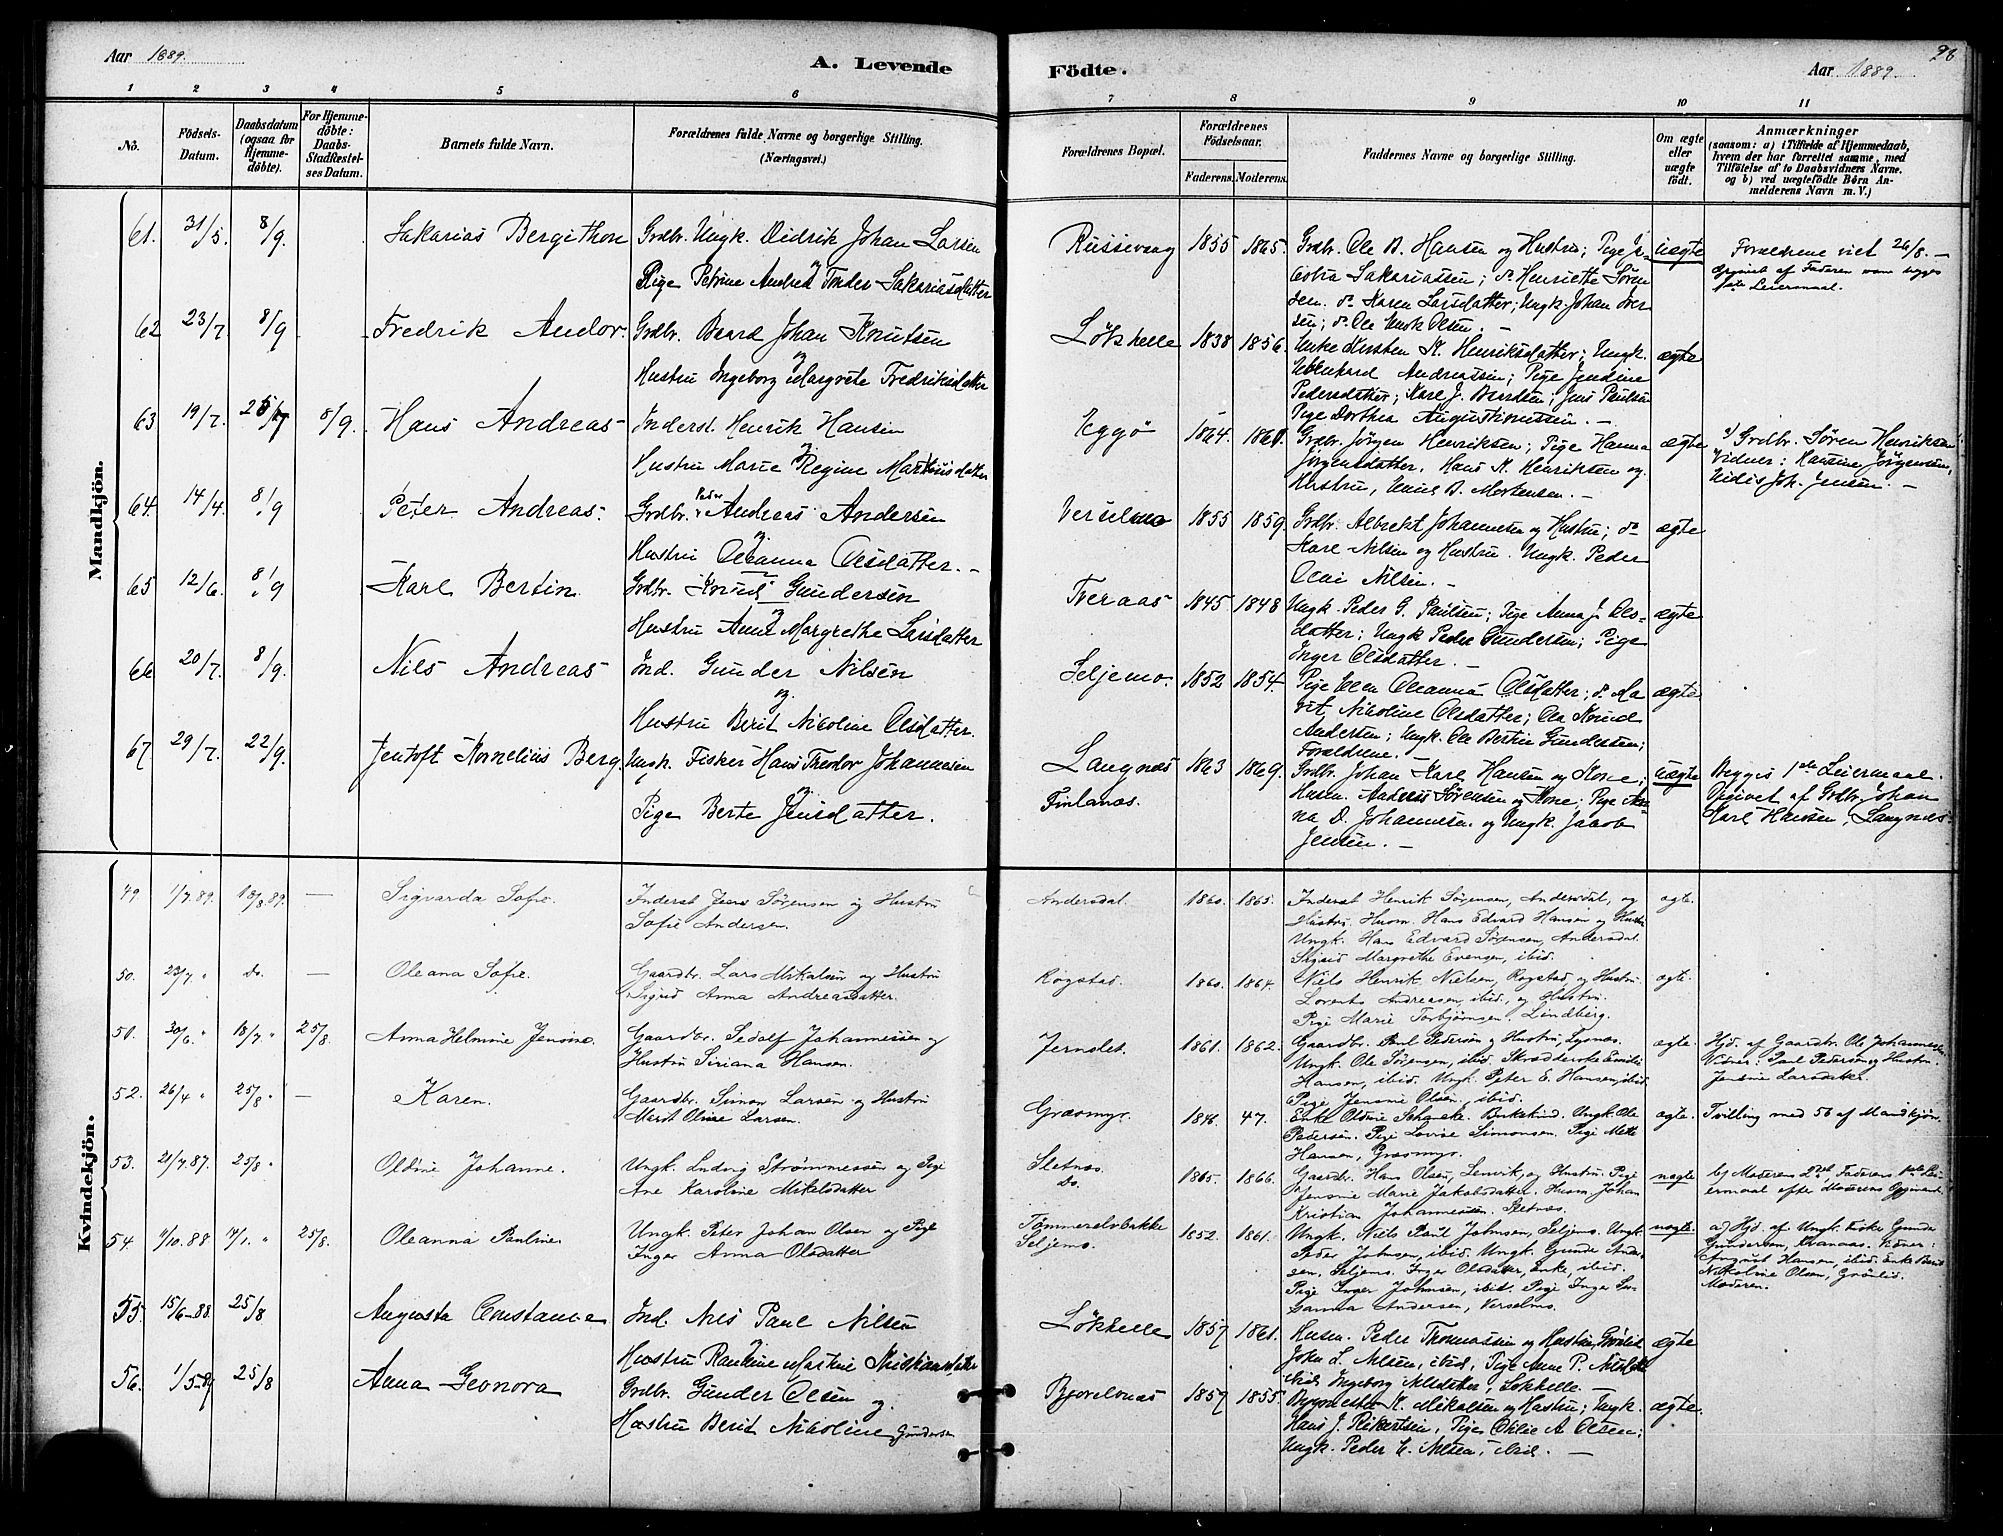 Aar 1889.
A. Levende
Födte.
Aar 1889.
98
1 2 3 4 5 6 7 8 9 10 11
No.
Födsels-Datum.
Daabsdatum (ogsaa for Hjemme-döbte).
For Hjemme-döbte: Daabs-Stadfæstel-ses Datum.
Barnets fulde Navn.
Forældrenes fulde Navne og borgerlige Stilling.
(Næringsvei.)
Forældrenes Bopæl.
Forældrenes Födselsaar.
Faderens. Moderens.
Faddernes Navne og borgerlige Stilling.
Om ægte eller uægte födt.
Anmærkninger
(saasom: a) i Tilfælde af Hjemmedaab, hvem der har forrettet samme, med Tilföielse af to Daabsvidners Navne. og b) ved uægtefödte Börn An-melderens Navn m. V.)
Mandkjön.
61. 31/5. 8/9. Sakarias Bergithon Grdbr. Ungk. Didrik Johan Larsen
Pige Petrine Andrea Sakariasdatter
Russevaag 1855 1865. Grdbr. Ole B. Hansen og Hustru; Pige Ja-
cobra Sakariassen; do Henriette Søren
sen. do Karen Larsdatter; Ungk. Johan Iver
sen; do Ole Olsen. -
uægte
Forældrene viet 26/8. -
62 23/7. 8/9 Fredrik Andor. Grdbr. Baard Johan Knutsen
og
Hustru Ingeborg Margrete Fredriksdatter
Løkhelle 1838 1856. Enke Kirsten K. Henriksdatter; Ungk.
Andreassen; Pige Jendine
Pedersdatter; Karl J. Berntsen; Jens Paulsen
Pige Dorthea Augustinussen. -
ægte
63 19/7. 8/9. Hans Andreas Inderst. Henrik Hansen
og
Hustru Marie Regine Martinisdatter
Eggø 1864. Grdbr. Jørgen Henriksen; Pige Hanna
Jørgensdatter. Hans K. Henriksen og
Hustru, B. Mortensen. -
ægte
a) Grdbr. Søren Henriksen
Vidner: Hansine Jørgensen,
Joh. Jensen. -
64. 14/4. 8/9 Peter Andreas. Grdbr. Peder Andreas Andersen
og
Hustru Oleanna Olsdatter. -
1855 1859. Grdbr. Albrekt Johannesen og Hustru; do
Karl Nilsen og Hustru. Ungk. Peder
Olai Nilsen. -
ægte
65 12/6. 8/9 Karl Bertin. Grdbr. Knud Gundersen
og
Hustru Anne Margrethe Larsdatter
Tveraas 1845 1848 Ungk. Peder G. Paulsen; Pige Anna J. Ols-
datter; Ungk Peder Gundersen; Pige
Inger Olsdatter. -
ægte
66 20/7. 8/9. Nils Andreas Ind. Gunder Nilsen
og
Hustru Berit Nicoline Olsdatter.
Seljemo. 1852 1854. Pige Ellen Oleanna Olsdatter; do Ma
rit Nikoline Olsdatter; Ole Knud
Andersen; Ungk. Ole Bertin Gundersen;
Forældrene. -
ægte
67 29/7. 22/9. Jentoft Kornelius Berg. Ungk. Fisker Hans Theodor Johannesen
og
Pige Berte Jensdatter.
Langnæs
Finlanæs.
1863 1869. Grdbr. Johan Karl Hansen og Kone;
Husm. Anders Sørensen og Kone; Pige An-
na D. Johannesen. og Ungk. Jacob
Jensen. -
uægte
Begges 1ste Leiermaal.
Opgivet af Grdbr. Johan
Karl Hansen, Langnæs.
Kvindekjön.
49. 1/7.89. 18/8.89. — Sigvarda Sofie. Inderst Jens Sørensen og Hustru
Sofie Andersen.
Andersdal. 1860. 1865. Inderst Henrik Sørensen, Andersdal, og
Hustru, Husm. Hans Edvard Hansen og Hustru
Ungk. Hans Edvard Sørensen, Andersdal.
Sigrid Margrethe Evensen, ibid.
ægte.
50. 23/7 " Do. — Oleana Sofie. Gaardbr. Lars Mikalsen og Hustru
Sigrid Anna Andreasdatter.
Rogstad. 1860. 1864. Niels Henrik Nielsen, Rogstad, og Hustru.
Lorents Andreasen, ibid., og Hustru.
Pige Marie Torbjørnsen, Lindberg.
ægte.
51. 30/6 " 18/7 " 25/8. Anna Helmine Jensine. Gaardbr. Sedolf Johannessen og
Hustru Siriana Hansen.
1861. 1862. Gaardbr. Paul Pedersen og Hustru, Lysnæs.
Ungk. Ole Sørensen, ibid. Skrædderske Emilie
Hansen, ibid. Ungk. Peter E. Hansen, ibid.
Pige Jensine Olsen, ibid.
ægte.
Hjd. af Gaardbr. Ole Johannesen
Vidner: Paul Pedersen og Hustru
Jensine Larsdatter.
52. 26/4 " 25/8 " — Karen. Gaardbr. Simon Larsen og Hustru
Marit Oline Larsen.
Græsmyr. 1846. 47. Enke Oldine Schancke. Birkestrand. Ungk. Ole
Pedersen. Pige Lovise Simonsen. Pige Mette
Hansen, Græsmyr.
ægte.
Tvilling med 56 af Mandkjøn.
53. 21/7.87. 25/8 " Oldine Johanne. Ungk. Ludvig Strømmesen og Pige
Ane Karoline Mikelsdatter
Sletnæs.
Do.
1865. 1866. Gaardbr. Hans Olsen, Lenvik, og Hustru. Pige
Jensine Marie Jakobsdatter. Husm. Johan
Kristian Johannessen. Sletnæs.
uægte.
b) Moderens 2det, Faderens 1ste Lei-
ermaal efter Moderens Opgivende.
54. 11/10.88 14/1. " 25/8. Oleanna Pauline Ungk. Peter Johan Olsen og Pige
Inger Anna Olsdatter
Tømmerelvbakke
Seljemo.
1852. 1861. Ungk. Niels Paul Johnsen, Seljemo. Ungk.
Peder Johnsen, ibid. Ungk. Gunder Ander-
sen, Seljemo. Inger Olsdatter, Enke, ibid.
Pige Inger Johnsen, ibid. Pige Inger Su-
sanna Andersen, Verselmo.
uægte.
a) Hjd. af Ungk. Fisker Gunder
Gundersen, Kvanaas. Vidner:
August Hansen, ibid. Enke Berit
Nikoline Olsen, Grønlid.
Moderen.
55. 15/6-88. 25/8 Augusta Constance Ind. Nils Paul Nilsen
og
Hustru Pauline Martine
Løkhelle 1857 1861. Husm. Peder Thomassen og Hustru, Grønlid
John L. Nilsen, ibid, Pige Anne P.
ibid, Ingeborg Nilsdatter, Løkhelle. -
ægte
56. 1/5-89 25/8 Anna Leonora Grdbr. Gunder Olsen
og
Hustru Berit Nikoline Gundersen
Bjorelvnæs 1857 1855. K. Mikalsen og Hustru; Ungk.
Hans J. Rikertsen, Pige Otilie A Olsen;
Ungk. Peder E. Nilsen, ibid. -
ægte.